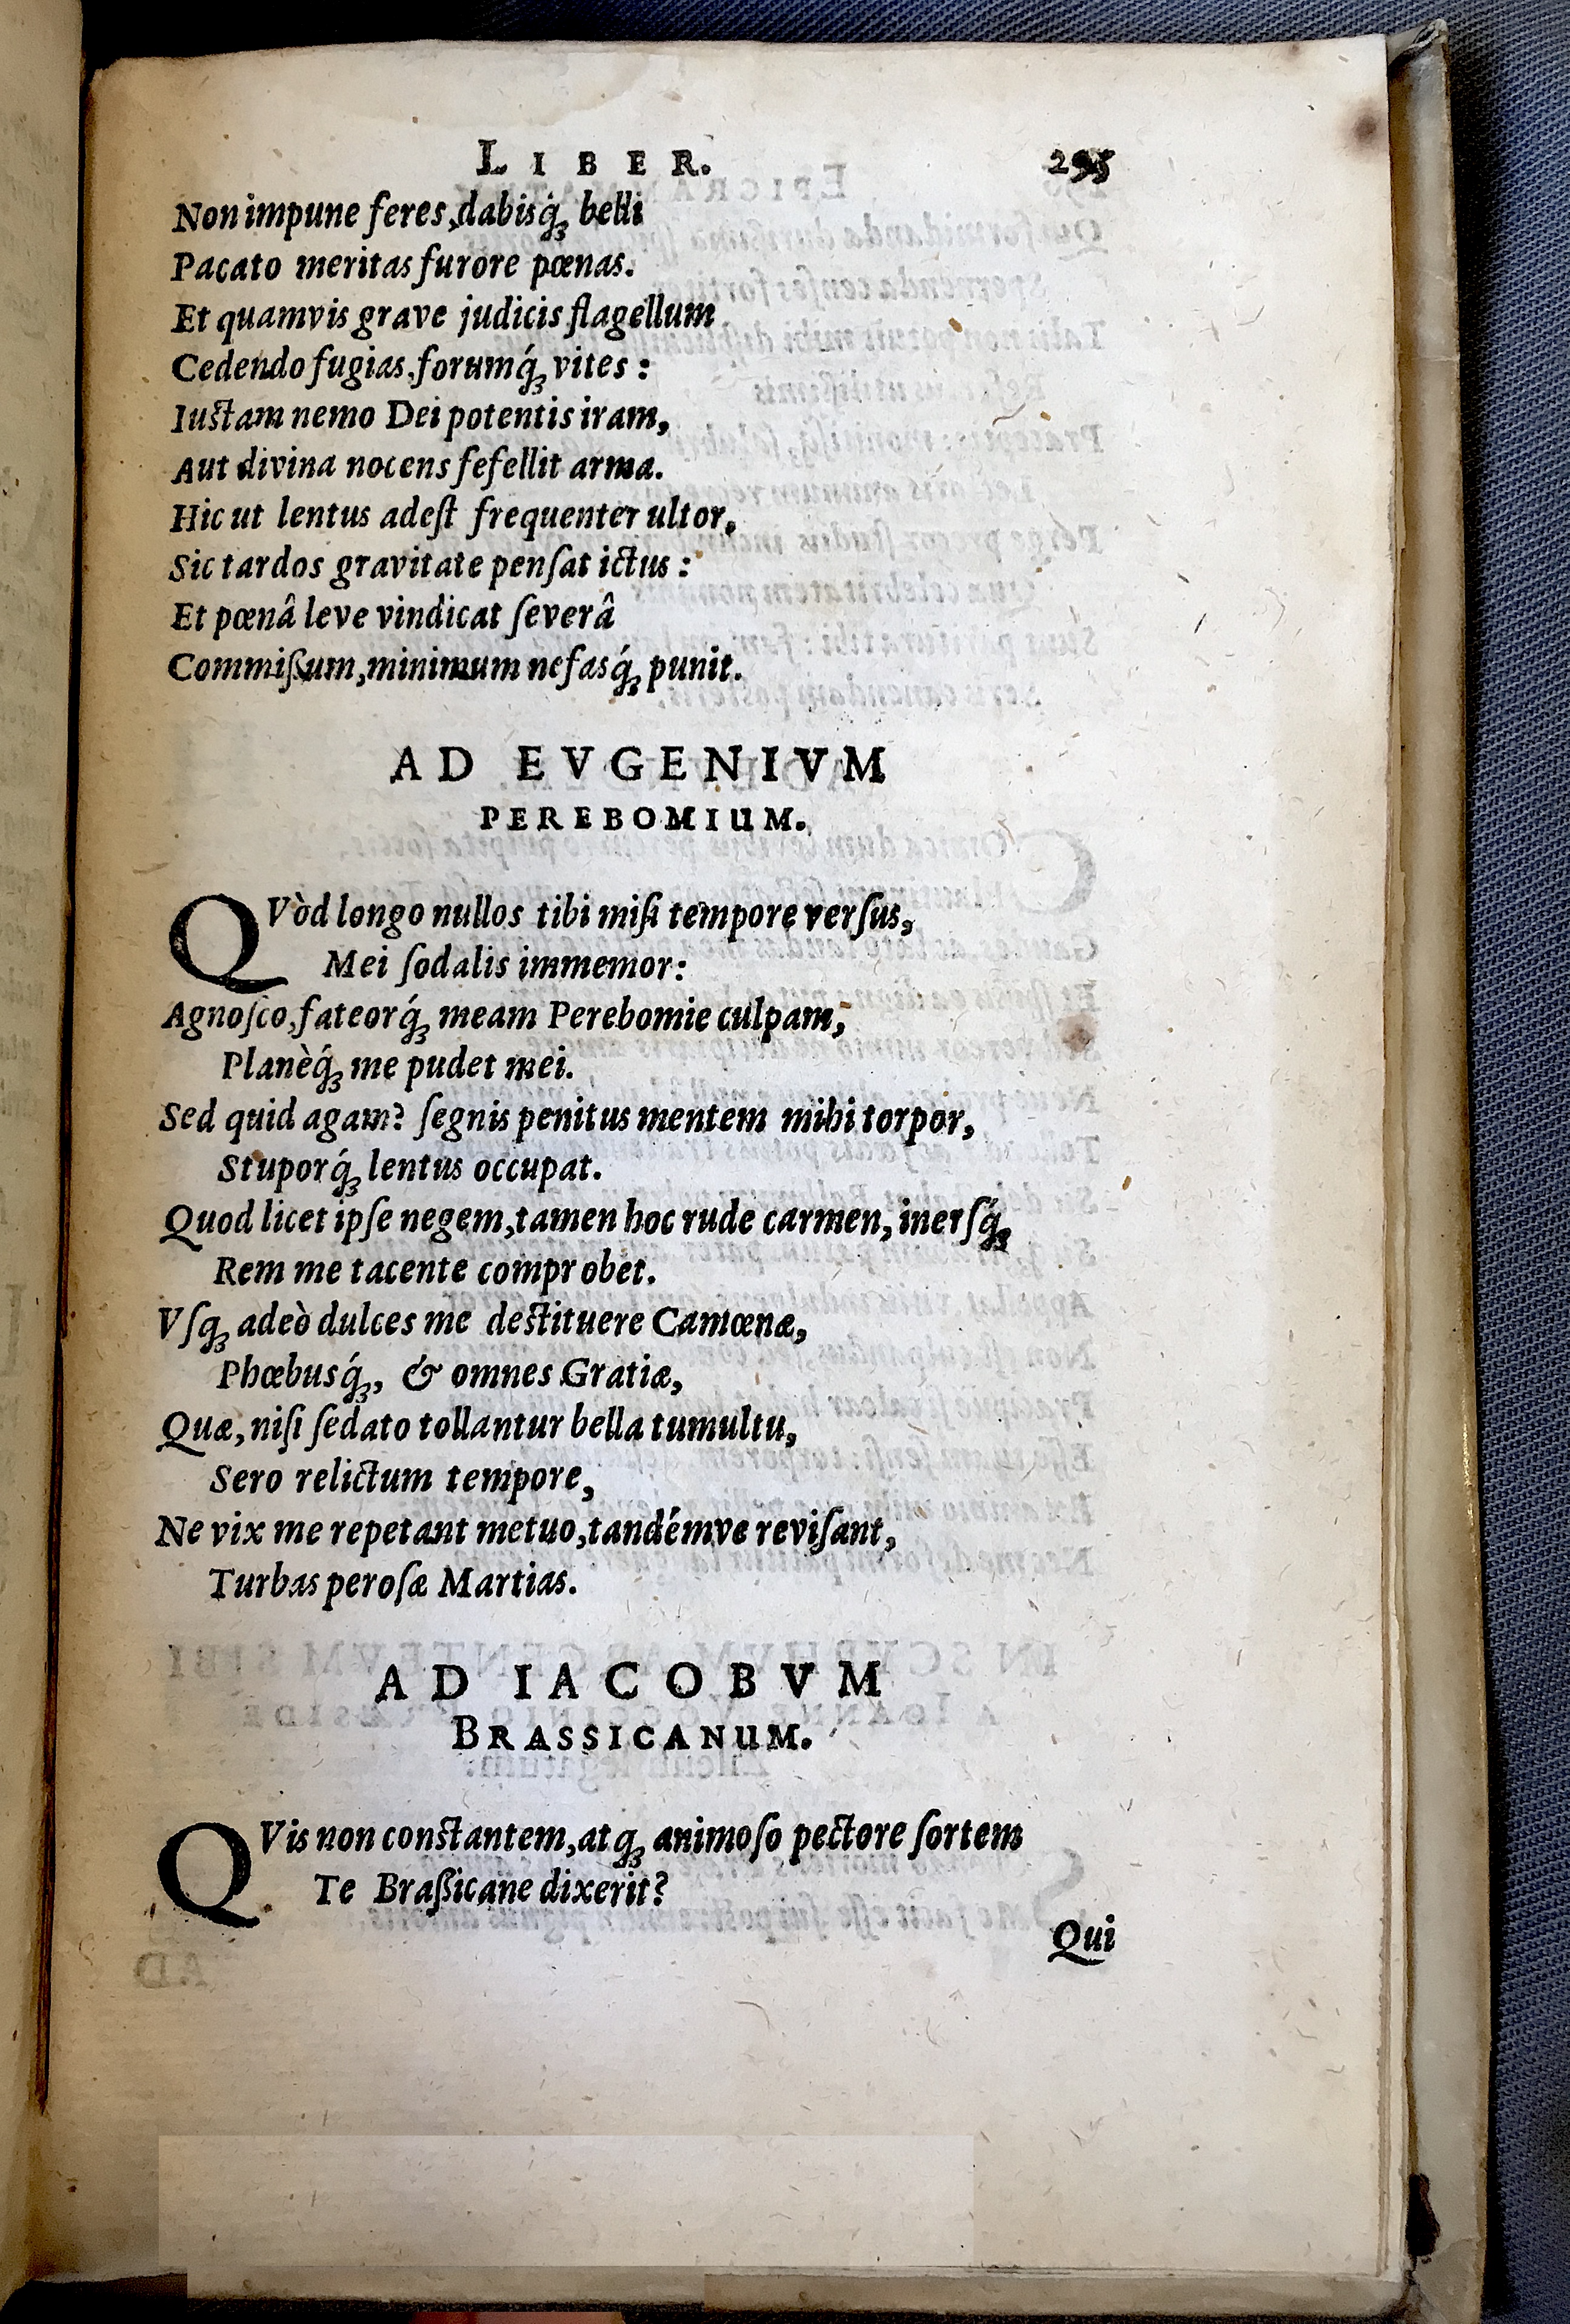 LIBER. 295
Non impune feres, dabisq́ꝫ belli
Pacato meritas furore pœnas.
Et quamvis grave judicis flagellum
Cedendo fugias, forumq́ꝫ vites :
Iustam nemo Dei potentis iram,
Aut divina nocens fefellit arma.
Hic ut lentus adest frequenter ultor,
Sic tardos gravitate penſat ictus :
Et pœnâ leve vindicat ſeverâ
Commißum, minimum nefasq́ꝫ punit.
AD EVGENIVM
PEREBOMIUM.
QVòd longo nullos tibi miſi tempore verſus,
Mei ſodalis immemor:
Agnoſco, fateorq́ꝫ meam Perebomie culpam,
Planèq́ꝫ me pudet mei.
Sed quid agam? ſegnis penitus mentem mihi torpor,
Stuporq́ꝫ lentus occupat.
Quod licet ipſe negem, tamen hoc rude carmen, inerſq́ꝫ
Rem me tacente comprobet.
Vſqꝫ adeò dulces me destituere Camœnæ,
Phœbusq́ꝫ, & omnes Gratiæ,
Quæ, niſi ſedato tollantur bella tumultu,
Sero relictum tempore,
Ne vix me repetant metuo, tandémve reviſant,
Turbas peroſæ Martias.
AD IACOBVM
BRASSICANUM.
QVis non constantem, atqꝫ animoſo pectore ſortem
Te Braßicane dixerit?
Qui